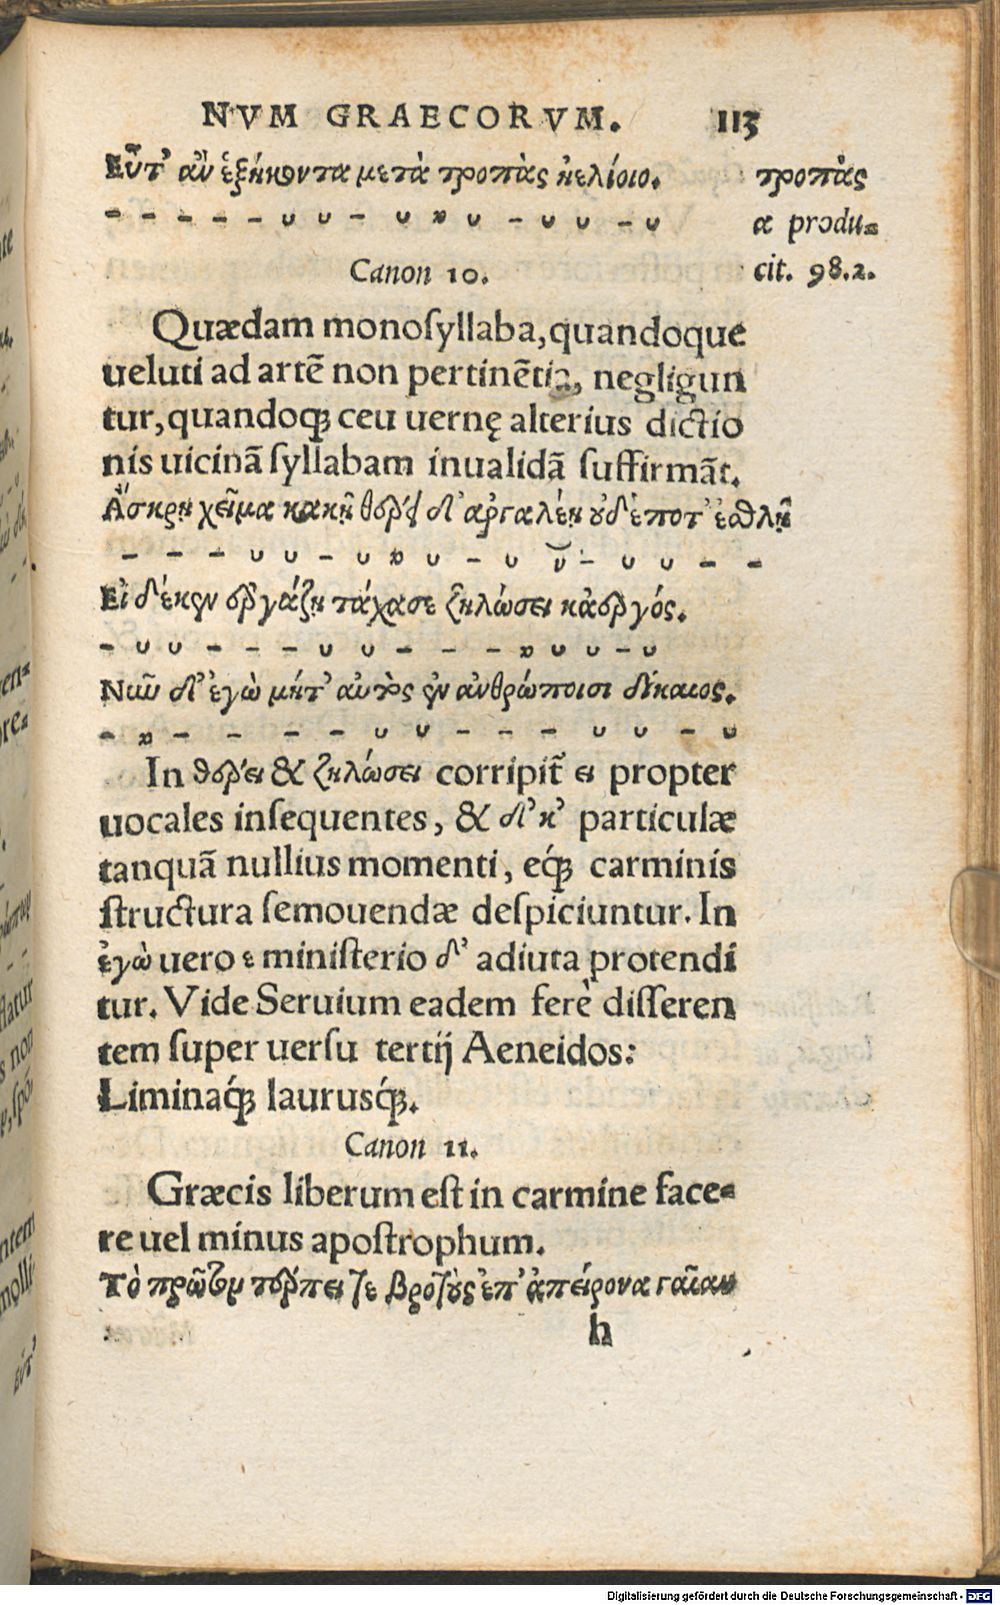 NVM GRAECORVM. 113
Εὖτ' ἂν ἑξήκοντα μετὰ τροπὰς ἠελίοιο.
τροπὰς
– – – – – υ υ – υ υ υ – υ υ – υ
α produ-
Canon 10.
cit. 98.2.
Quædam monosyllaba, quandoque
ueluti ad artẽ non pertinẽtia, negligun
tur, quandoq; ceu uernę alterius dictio
nis uicinã syllabam inualidã suffirmãt.
Ἄσκρῃ χεῖμα κακῇ θέρει δ' ἀργαλέῃ οὐδέποτ' ἐσθλῇ
– – – υ υ – υ υ υ – υ υ – υ υ – –
Εἰ δέ κεν ἐργάζῃ τάχα σε ζηλώσει κἀεργός.
– υ υ – – – υ υ – – – υ υ υ – υ
Νῦν δ' ἐγὼ μήτ' αὐτὸς ἐν ἀνθρώποισι δίκαιος.
– υ – – – – – υ υ – – – υ υ – υ
In θέρει & ζηλώσει corripit ει propter
uocales insequentes, & δ' κ' particulæ
tanquã nullius momenti, eq́; carminis
structura semouendæ despiciuntur. In
ἐγὼ uero ε ministerio δ' adiuta protendi
tur. Vide Seruium eadem ferè disseren
tem super uersu tertij Aeneidos:
Liminaq́; laurusq́;.
Canon 11.
Græcis liberum est in carmine face-
re uel minus apostrophum.
Τὸ πρῶτον τέρπει τε βροτοὺς ἐπ' ἀπείρονα γαῖαν
h
Digitalisierung gefördert durch die Deutsche Forschungsgemeinschaft - DFG